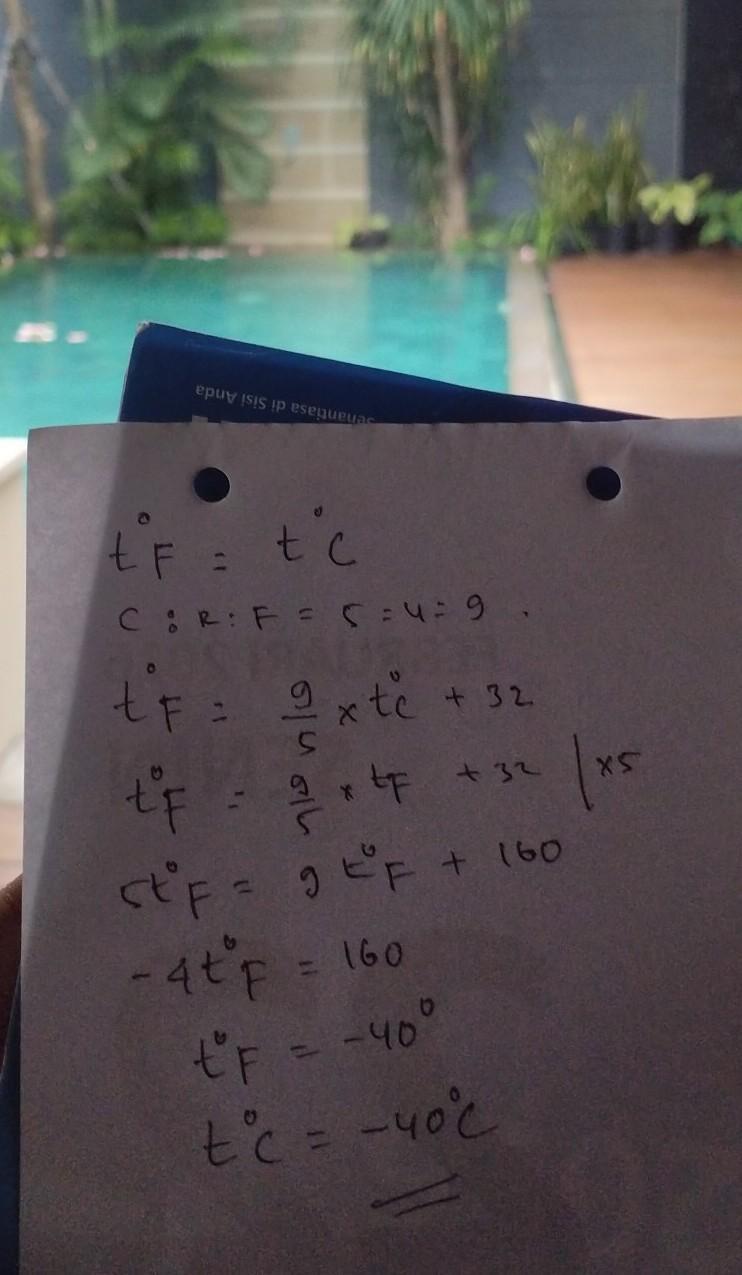 Senantiasa di Sisi Anda
t°F = t°C
C : R : F = 5 = 4 = 9 .
t°F = 9/5 x t°C + 32
t°F = 9/5 x tF + 32 | x5
5t°F = 9 t°F + 160
-4t°F = 160
t°F = -40°
t°C = -40°C